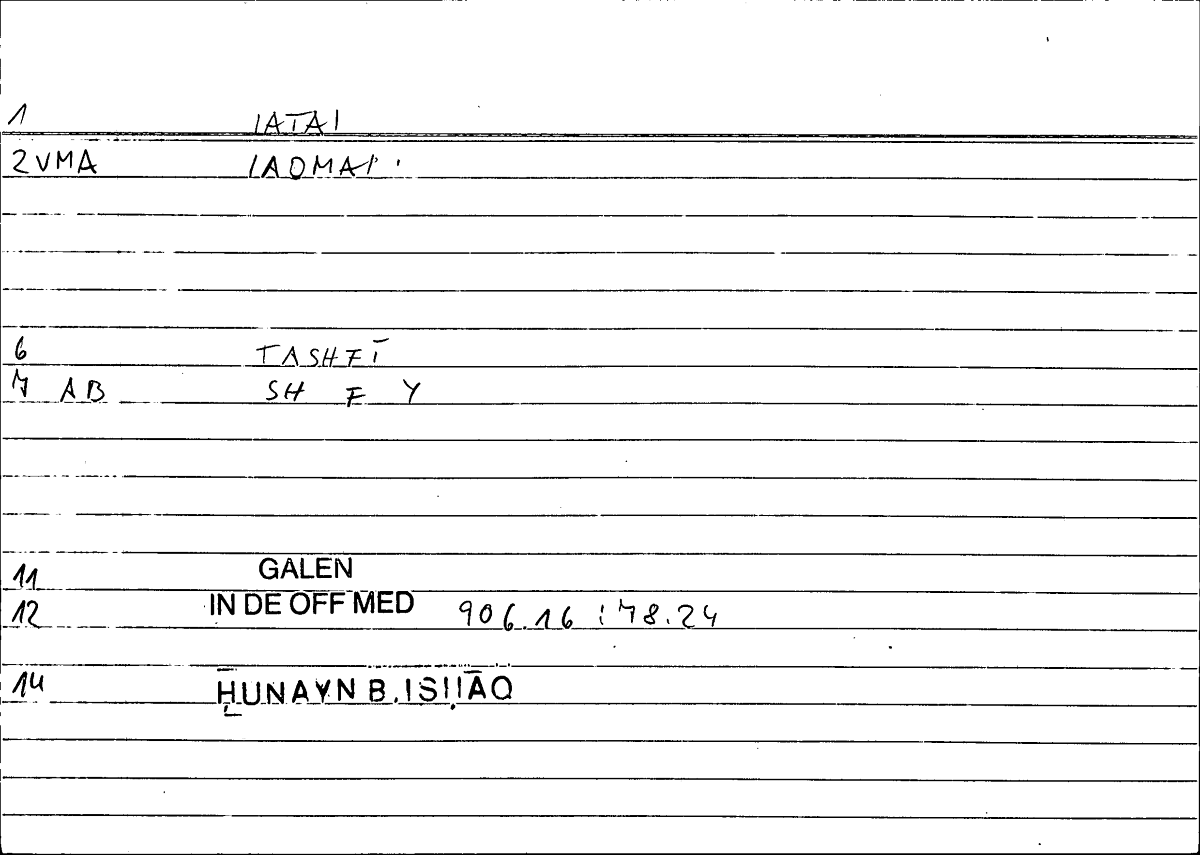 1 IATAI
2VMA IAOMAI
6 TASHFĪ
7 AB SH F Y
11 GALEN
12 IN DE OFF MED 906.16 : 78.24
14 ḤUNAYN B. ISḤĀQ